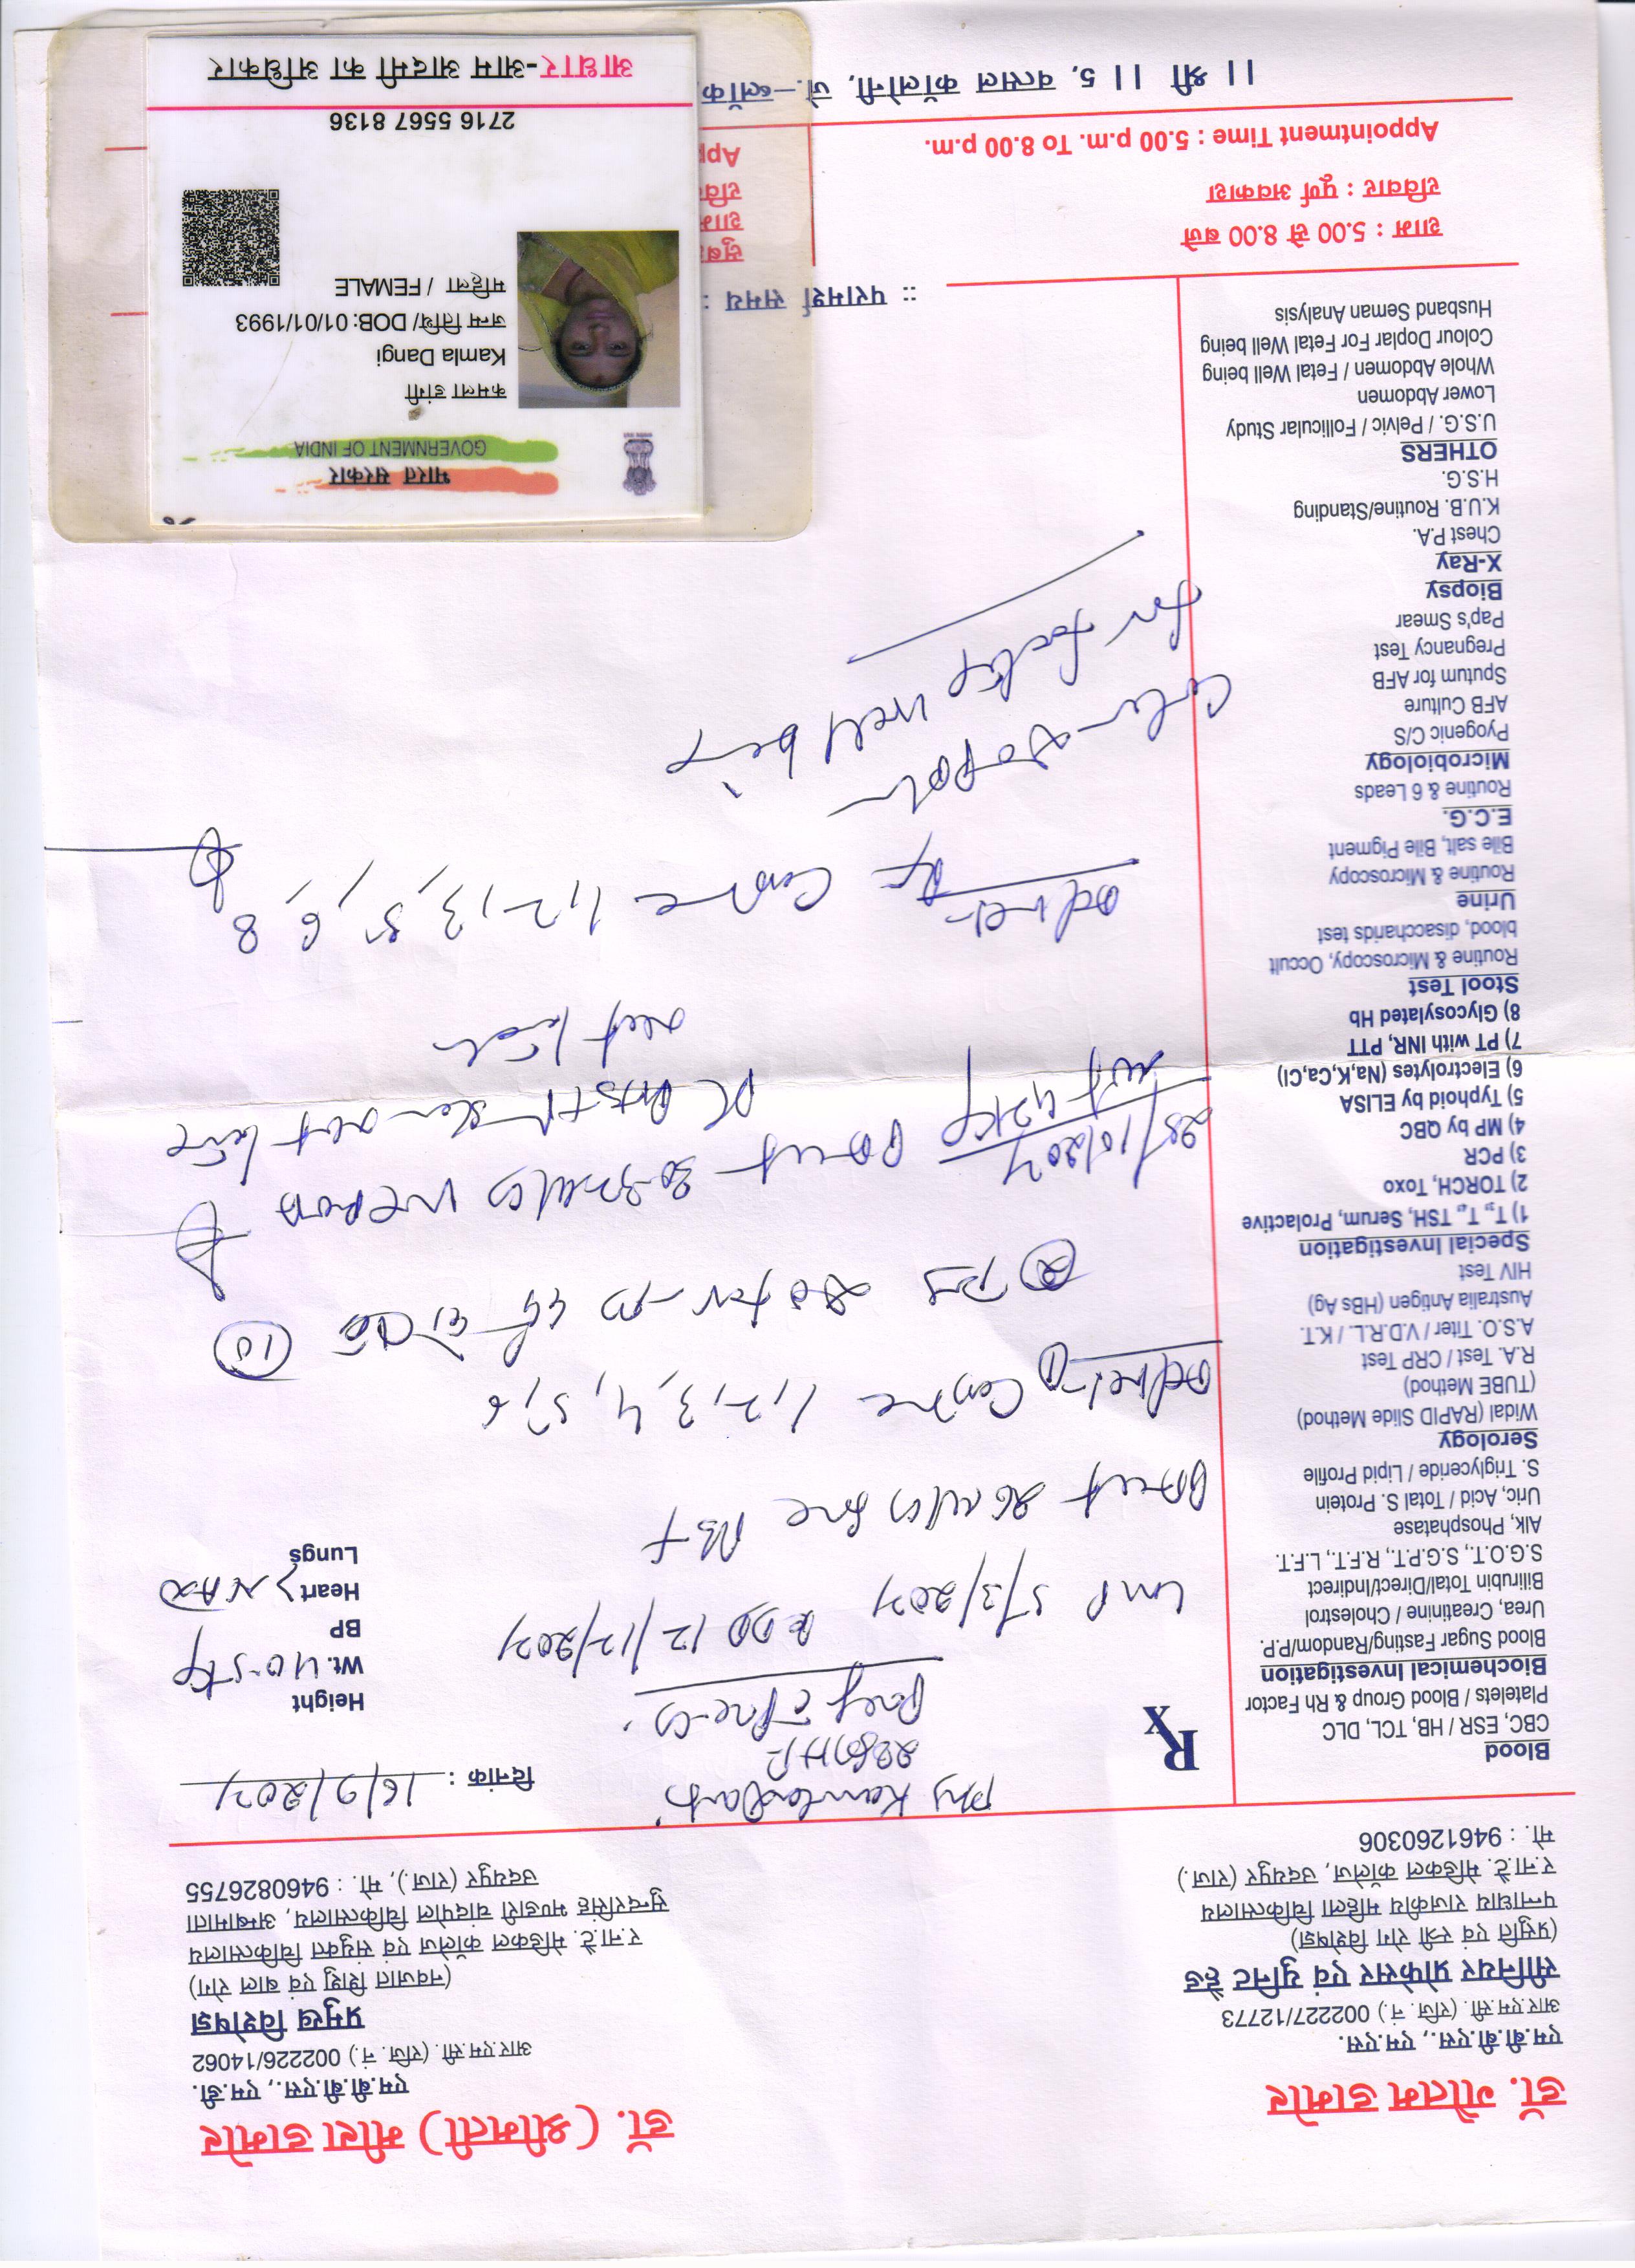 डॉ. गौतम डामोर
एम.बी.बी.एस., एम.एस.
आर.एम.सी. (रजि. नं.) 002227/12773
सीनियर प्रोफेसर एवं युनिट हैड
(प्रसुति एवं स्त्री रोग विशेषज्ञ)
पन्नाधाय राजकीय महिला चिकित्सालय
र.ना.टै. मेडिकल कॉलेज, उदयपुर (राज.)
मो. : 9461260306
डॉ. (श्रीमती) मीरा डामोर
एम.बी.बी.एस., एम.डी.
आर.एम.सी. (रजि. नं.) 002226/14062
प्रमुख विशेषज्ञ
(नवजात शिशु एवं बाल रोग)
र.ना.टै. मेडिकल कॉलेज एवं संयुक्त चिकित्सालय
सुन्दरसिंह भण्डारी चांदपोल चिकित्सालय, अम्बामाता
उदयपुर (राज.), मो. : 9460826755
Blood
CBC, ESR / HB, TCL, DLC
Platelets / Blood Group & Rh Factor
Biochemical Investigation
Blood Sugar Fasting/Random/P.P.
Urea, Creatinine / Cholestrol
Bilirubin Total/Direct/Indirect
S.G.O.T., S.G.P.T., R.F.T., L.F.T.
Alk, Phosphatase
Uric, Acid / Total S. Protein
S. Triglyceride / Lipid Profile
Serology
Widal (RAPID Slide Method)
(TUBE Method)
R.A. Test / CRP Test
A.S.O. Titer / V.D.R.L. / K.T.
Australia Antigen (HBs Ag)
HIV Test
Special Investigation
1) T₃, T₄, TSH, Serum, Prolactive
2) TORCH, Toxo
3) PCR
4) MP by QBC
5) Typhoid by ELISA
6) Electrolytes (Na,K,Ca,Cl)
7) PT with INR, PTT
8) Glycosylated Hb
Stool Test
Routine & Microscopy, Occult
blood, disaccharids test
Urine
Routine & Microscopy
Bile salt, Bile Pigment
E.C.G.
Routine & 6 Leads
Microbiology
Pyogenic C/S
AFB Culture
Sputum for AFB
Pregnancy Test
Pap's Smear
Biopsy
X-Ray
Chest P.A.
K.U.B. Routine/Standing
H.S.G.
OTHERS
U.S.G. / Pelvic / Follicular Study
Lower Abdomen
Whole Abdomen / Fetal Well being
Colour Doplar For Fetal Well being
Husband Seman Analysis
Rx
दिनांक : 16/9/2021
Height
Wt. 40.5 kg
BP
Heart
Lungs
LMP 5/3/2021 EDD 12/12/2021
1, 2, 3, 4, 5, 6
10
wt 42 kg
Advice
1, 2, 3, 5, 6, 8
Color Doppler
for foetal well being
:: परामर्श समय :
शाम : 5.00 से 8.00 बजे
रविवार : पूर्ण अवकाश
Appointment Time : 5.00 p.m. To 8.00 p.m.
सुबह
शाम
रवि
App
।। श्री ।। 5, वत्सल कॉलोनी, जे.-ब्लॉक
भारत सरकार
GOVERNMENT OF INDIA
कमला डांगी
Kamla Dangi
जन्म तिथि/ DOB: 01/01/1993
महिला / FEMALE
2716 5567 8136
आधार-आम आदमी का अधिकार